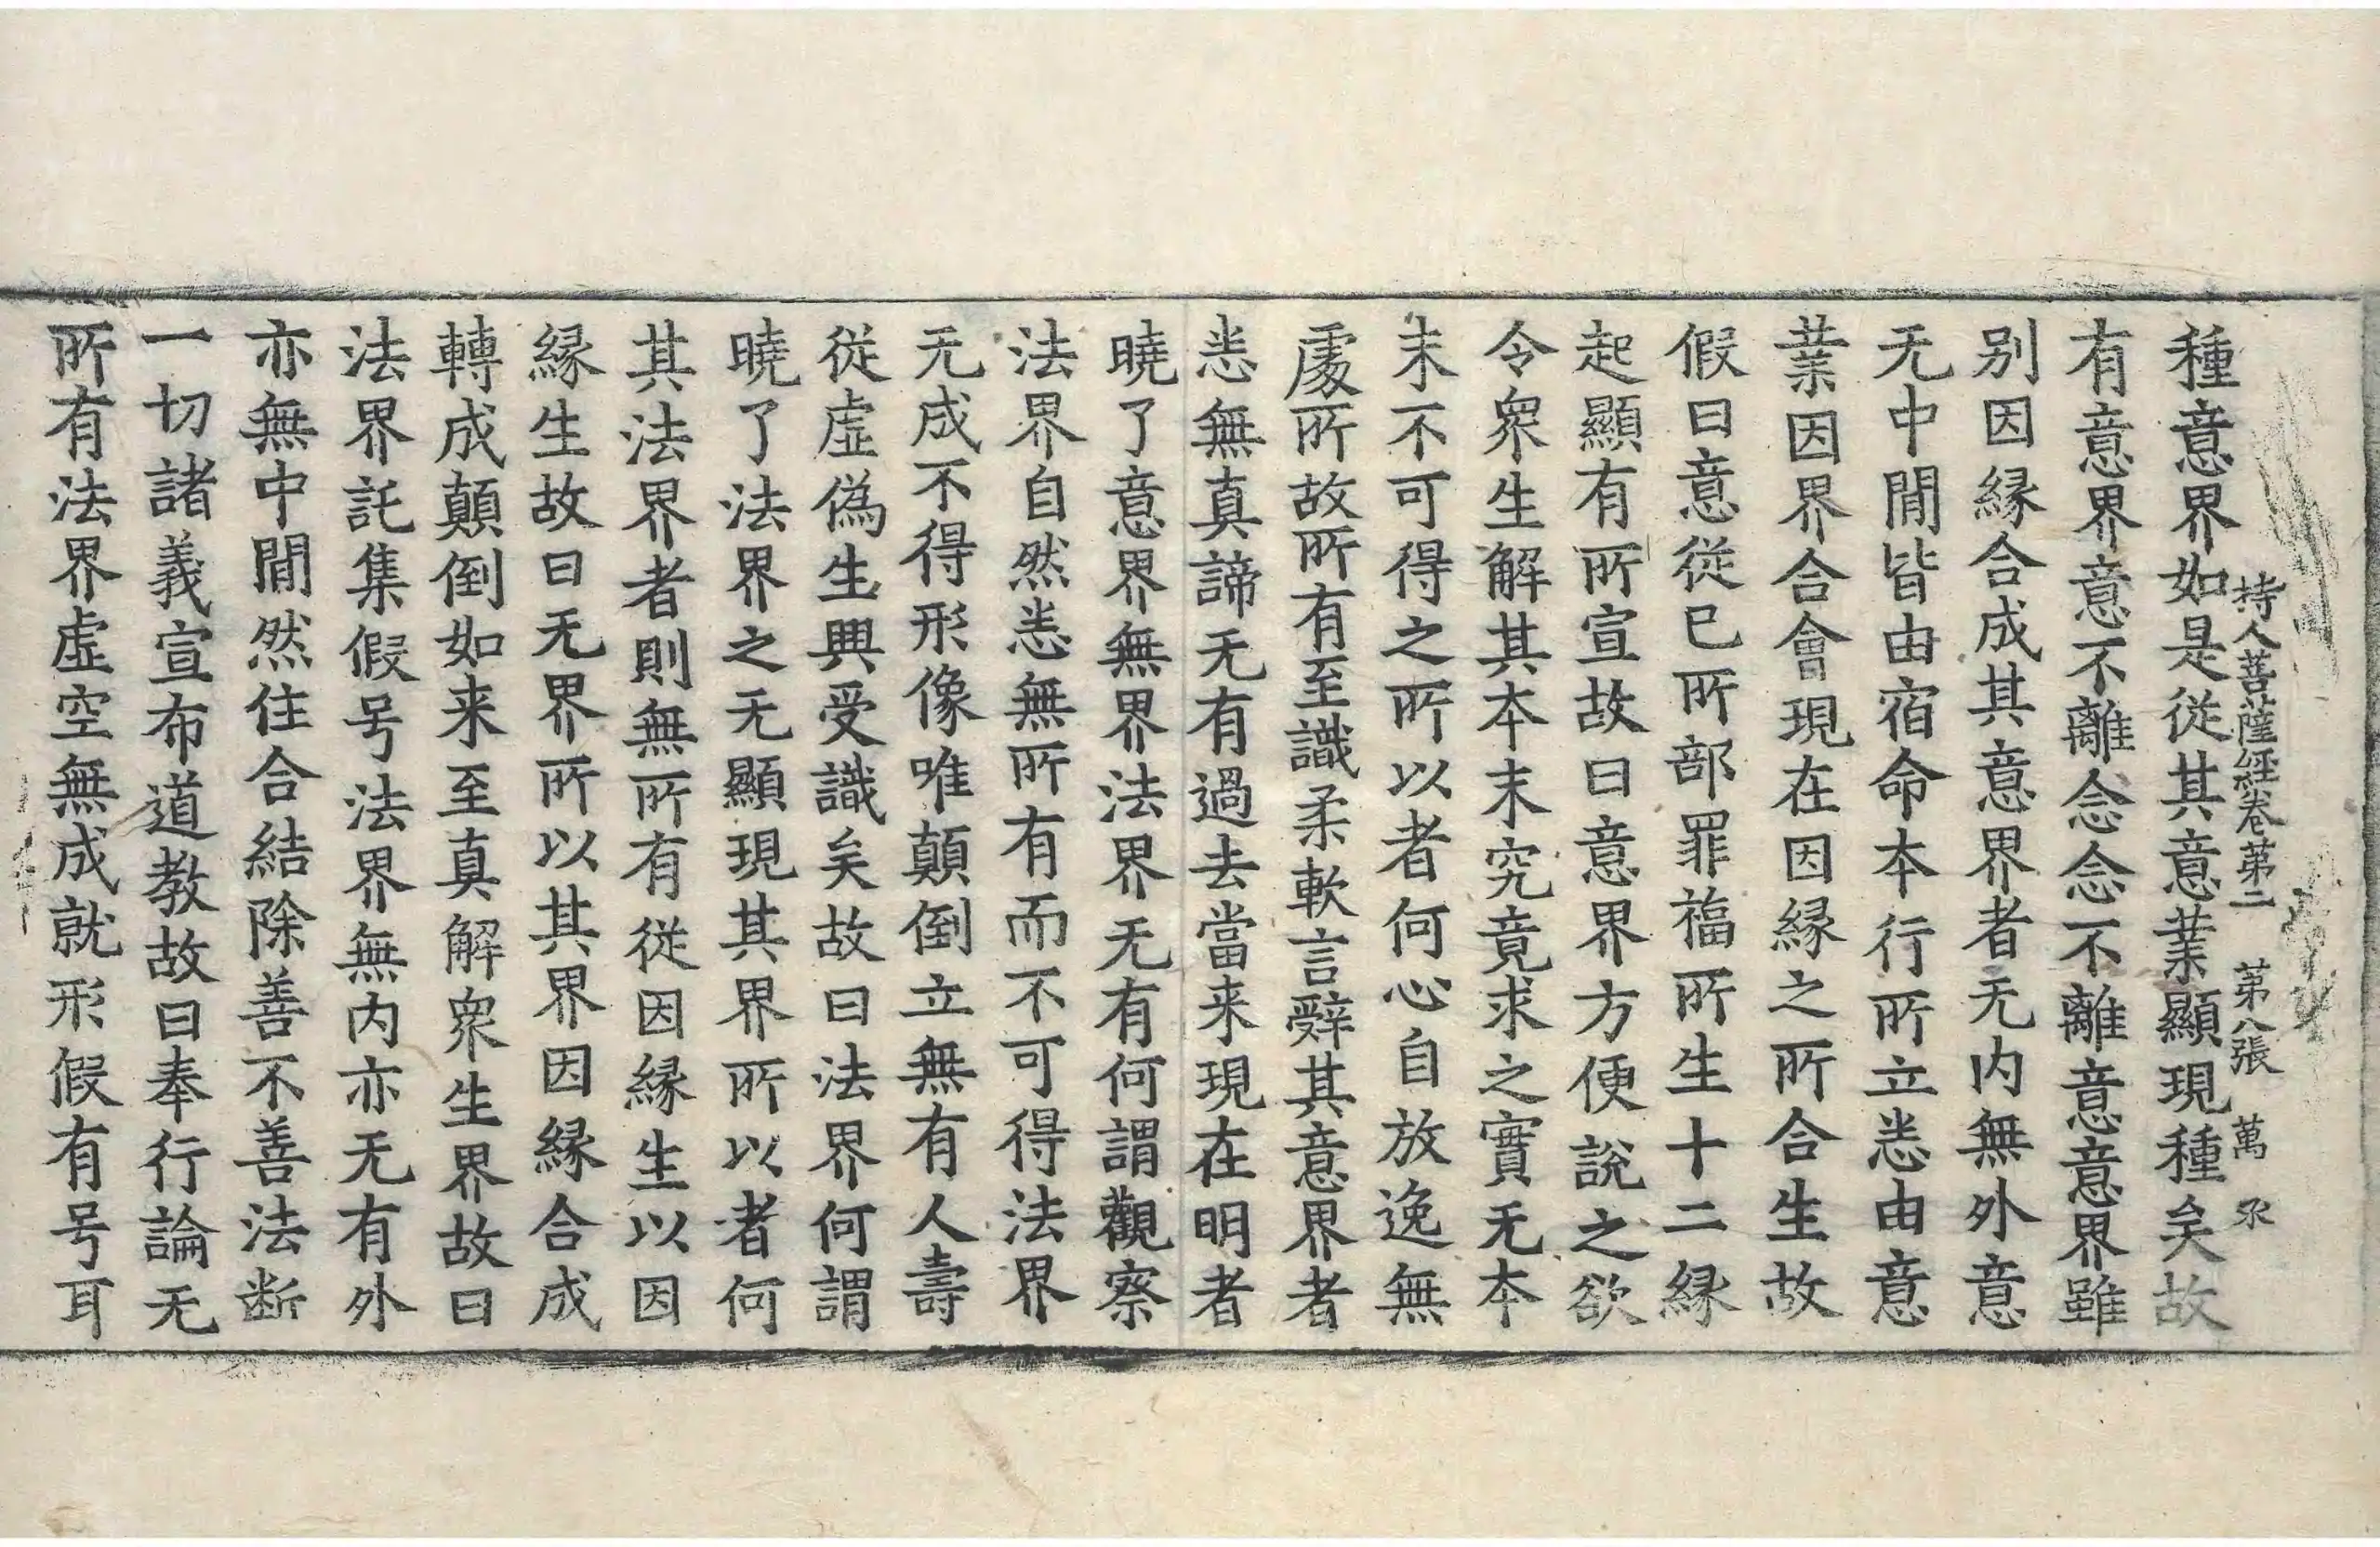 持人菩薩經卷第二 第八張 萬
種意界如是從其意業顯現種矣故
有意界意不離念念不離意意界雖
別因縁合成其意界者无内無外意
无中間皆由宿命本行所立悉由意
業因界合會現在因縁之所合生故
假曰意從已所部罪福所生十二縁
起顯有所宣故曰意界方便說之欲
令衆生解其本末究竟求之實无本
末不可得之所以者何心自放逸無
處所故所有至識柔軟言辭其意界者
悉無真諦无有過去當来現在明者
曉了意界無界法界无有何謂觀察
法界自然悉無所有而不可得法界
无成不得形像唯顛倒立無有人壽
從虛偽生興受識矣故曰法界何謂
曉了法界之无顯現其界所以者何
其法界者則無所有從因縁生以因
縁生故曰无界所以其界因縁合成
轉成顛倒如来至真解衆生界故曰
法界託集假号法界無内亦无有外
亦無中間然住合結除善不善法断
一切諸義宣布道教故曰奉行論无
所有法界虛空無成就形假有号耳